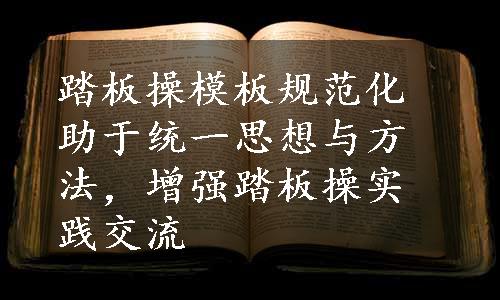 踏板操模板规范化
助于统一思想与方
法，增强踏板操实
践交流